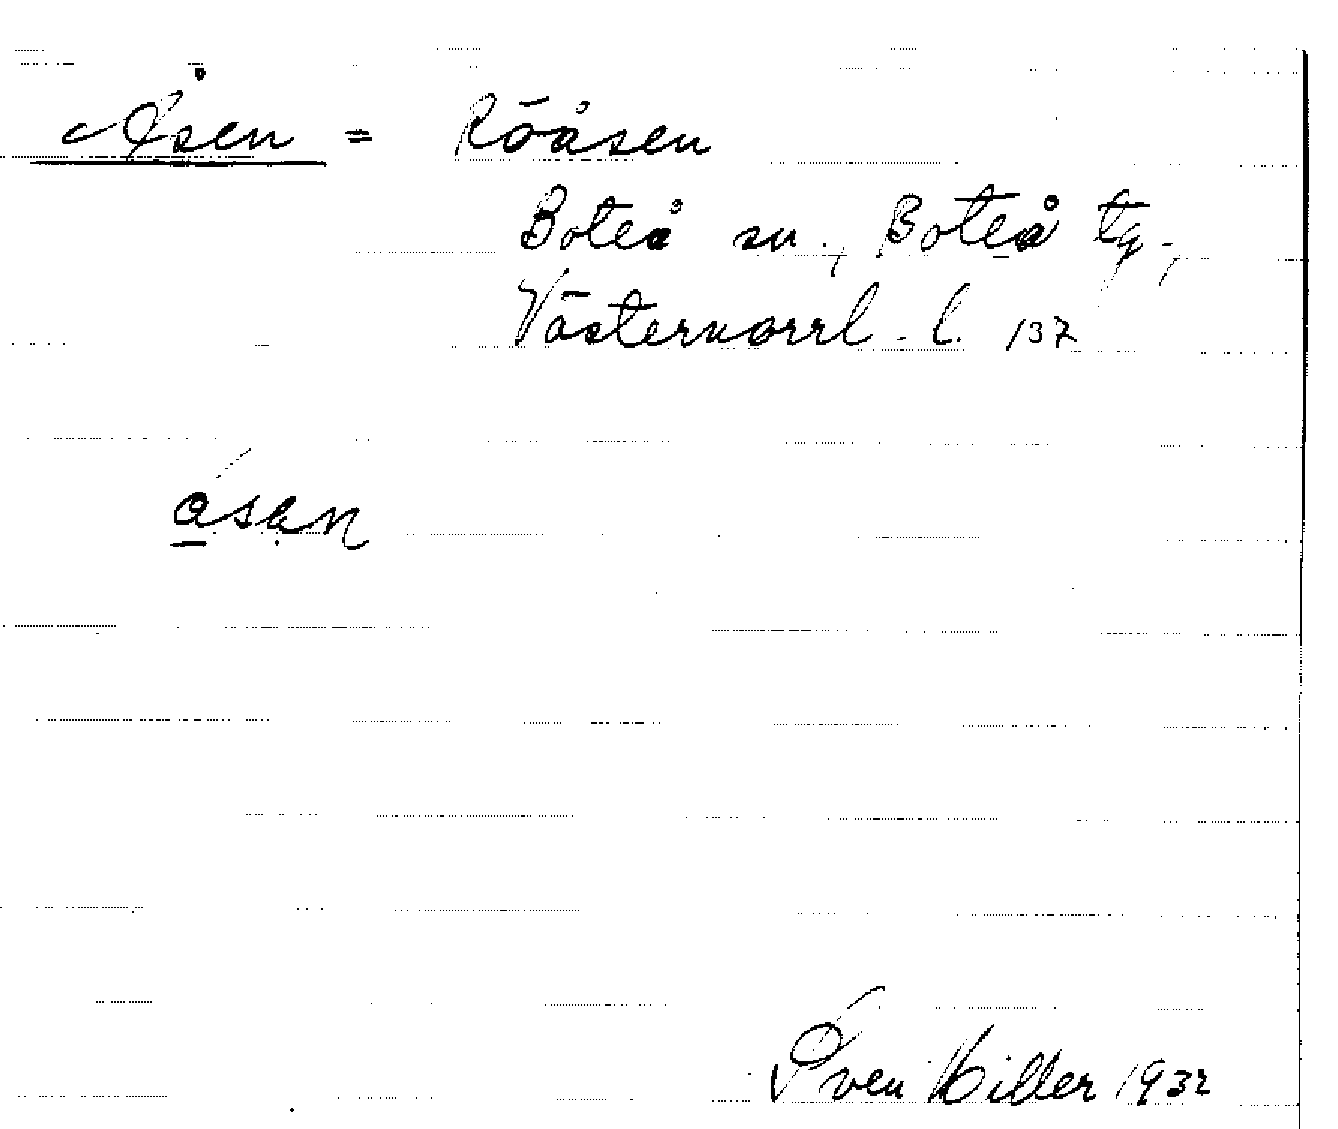 Åsen = Röåsen
Boteå sn., Boteå tg.,
Västernorrl. l. 137
åsan
Sven Hiller 1932